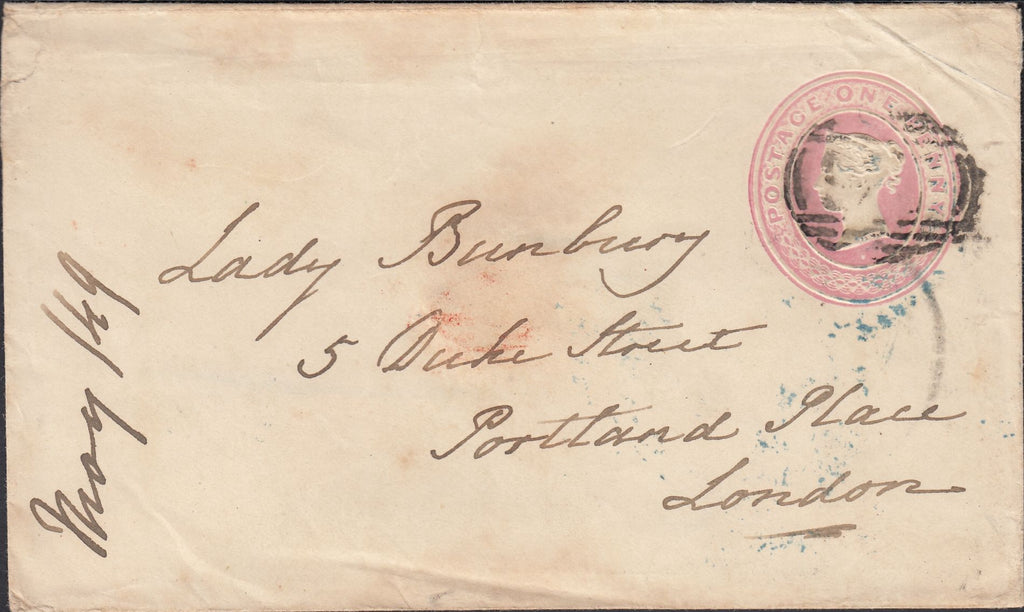 POSTAGE ONE PENNY
Lady Bunbury
5 Duke Street
Portland Place
London
May /49